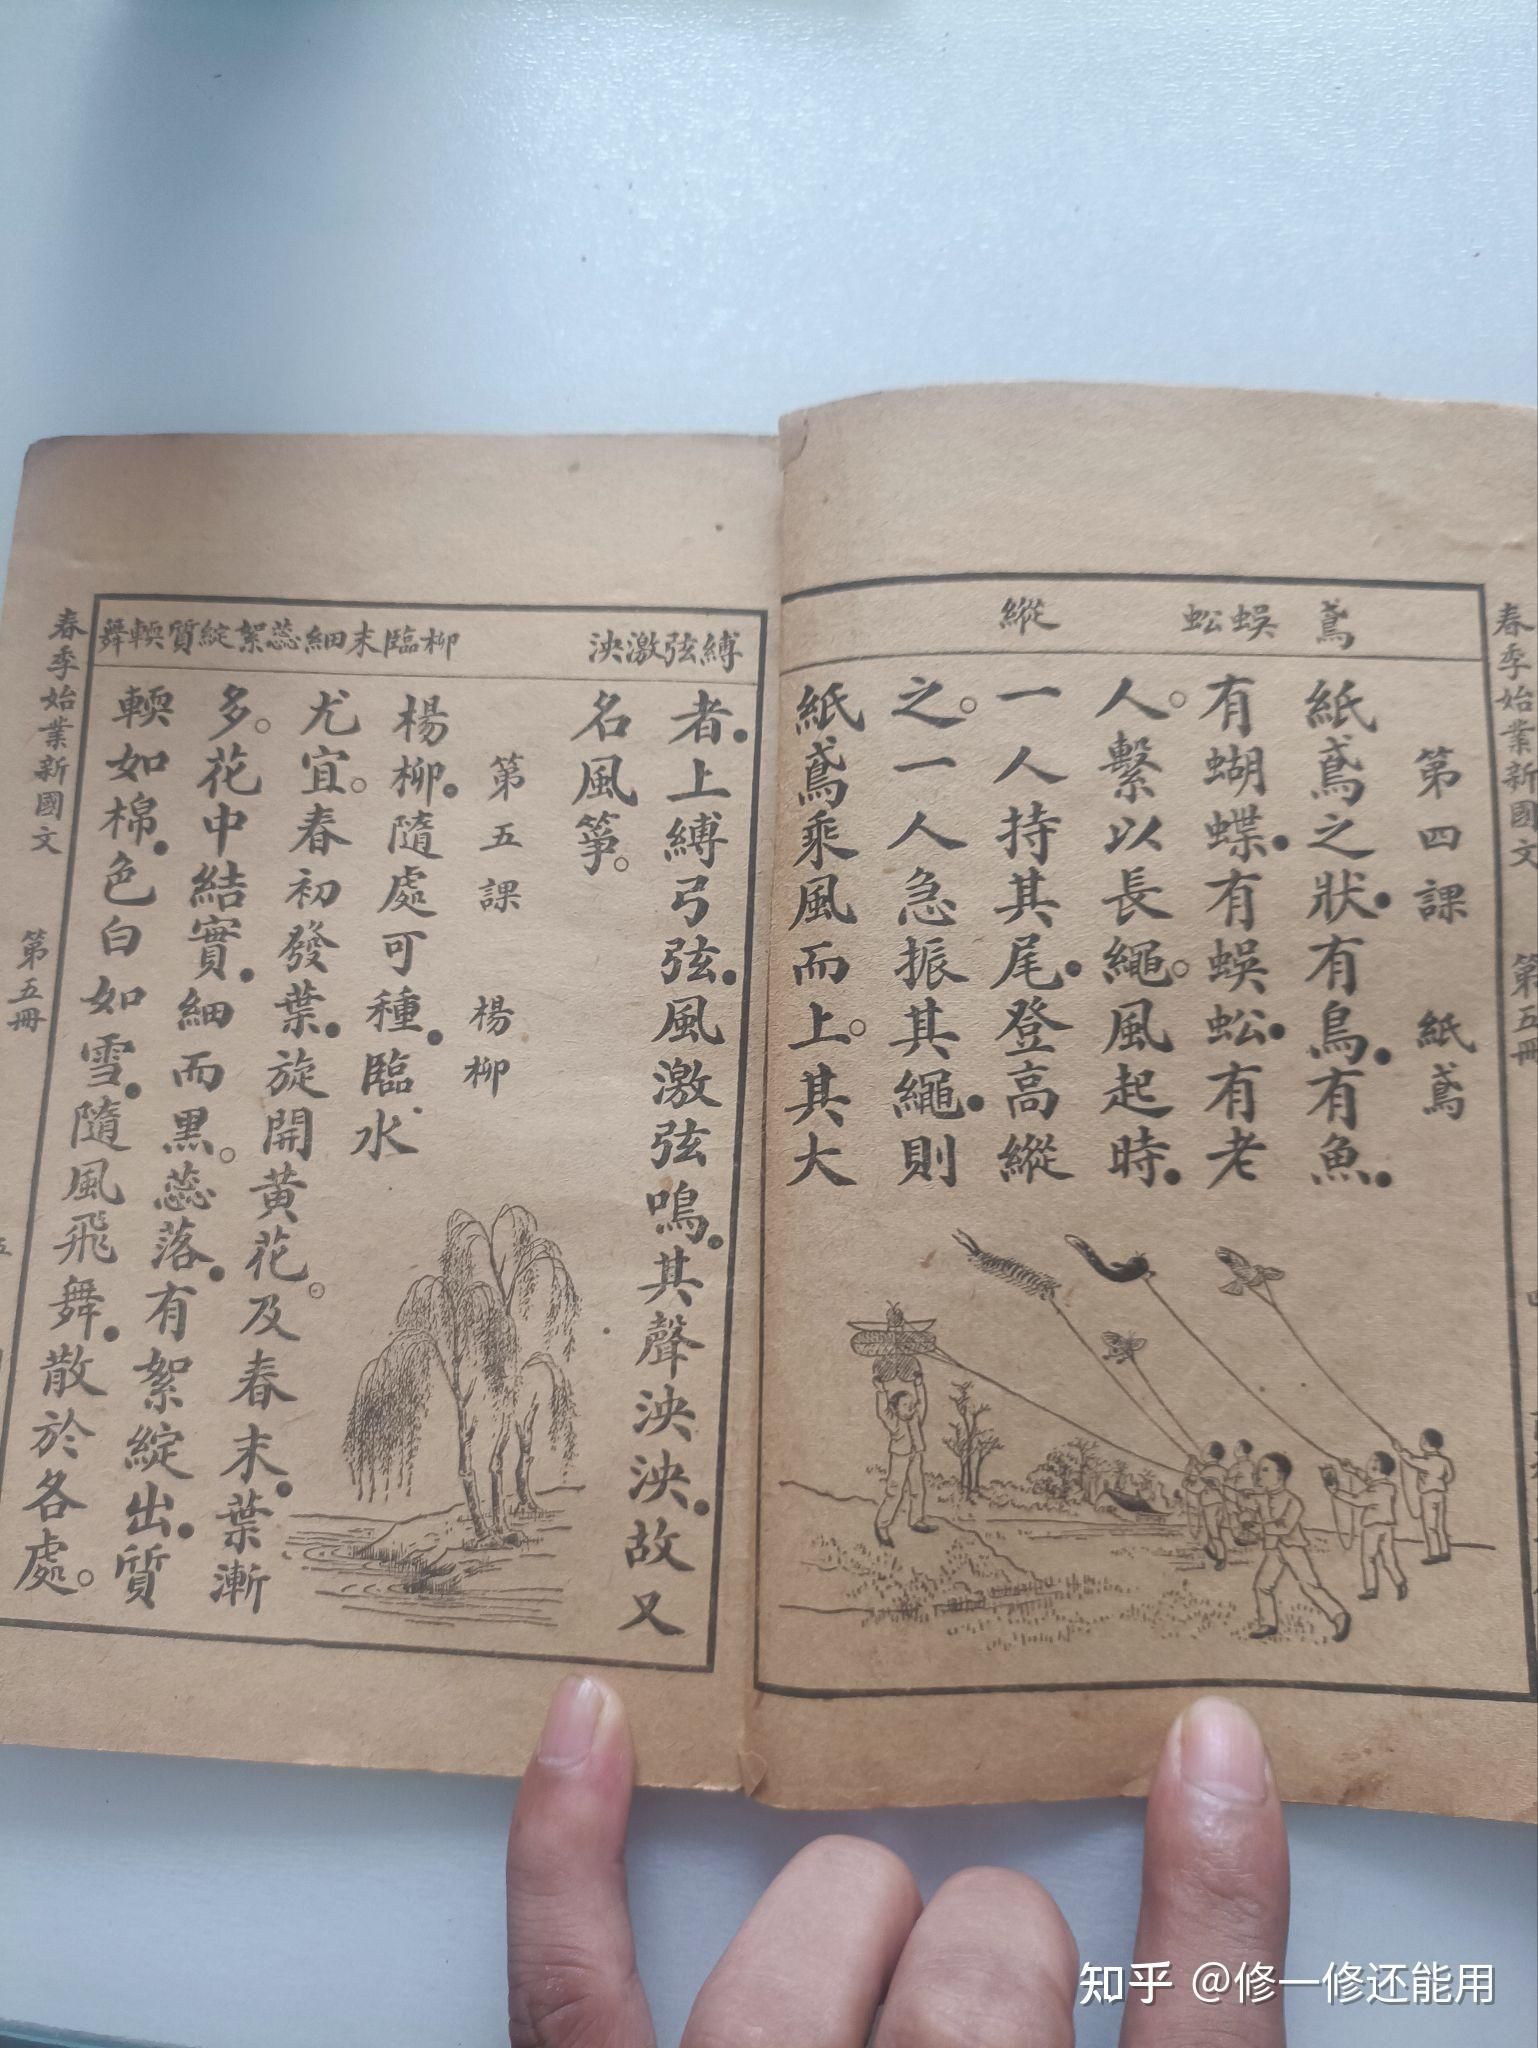 春季始業新國文 第五冊
鳶
蜈蚣
縱
第四課 紙鳶
紙鳶之狀●有鳥●有魚●
有蝴蝶●有蜈蚣●有老
人○繫以長繩○風起時●
一人持其尾●登高縱
之○一人急振其繩●則
紙鳶乘風而上○其大
縛弦激泱
柳臨末細蕊絮綻質輭舞
者●上縛弓弦●風激弦鳴●其聲泱泱●故又
名風箏○
第五課 楊柳
楊柳●隨處可種●臨水
尤宜○春初發葉●旋開黃花○及春末●葉漸
多○花中結實●細而黑○蕊落●有絮綻出●質
輭如棉●色白如雪●隨風飛舞●散於各處○
春季始業新國文 第五冊
五
知乎 @修一修还能用